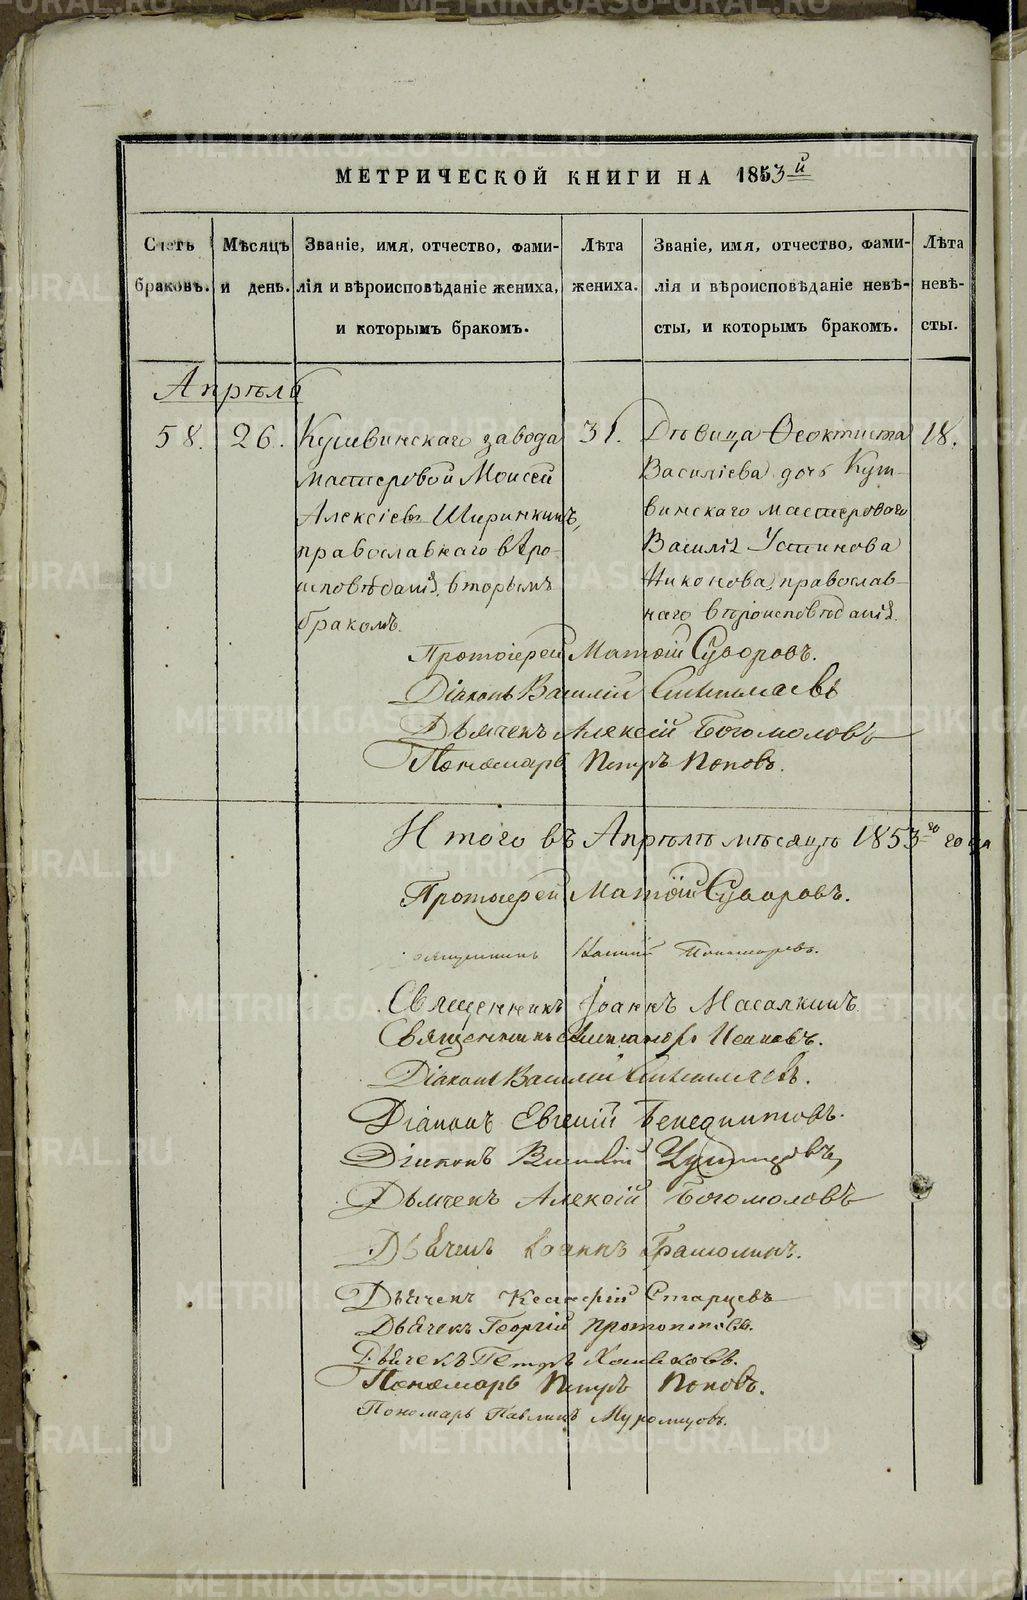 МЕТРИЧЕСКОЙ КНИГИ НА 1853й
Счетъ браковъ.
Мѣсяцъ и день.
Званіе, имя, отчество, фами-
лія и вѣроисповѣданіе жениха,
и которымъ бракомъ.
Лѣта жениха.
Званіе, имя, отчество, фами-
лія и вѣроисповѣданіе невѣ-
сты, и которымъ бракомъ.
Лѣта невѣ-
сты.
Апрѣль
58. 26.
Кушвинскаго завода
мастеровой Моисей
Алексіевъ Ширинкинъ,
православнаго вѣро-
исповѣданія, вторымъ
бракомъ.
31.
Дѣвица Ѳеоктиста
Василіева дочь Куш-
винскаго мастероваго
Василія Устинова
Никонова, православ-
наго вѣроисповѣданія.
18.
Протоіерей Матѳій Суворовъ.
Діаконъ Василій
Дьячекъ Алексій Богомоловъ
Пономарь Петръ Поповъ.
Итого въ Апрѣлѣ мѣсяцѣ 1853го года
Протоіерей Матѳій Суворовъ.
Священникъ Іоаннъ Масалкинъ
Священникъ Александръ Поповъ.
Діаконъ Василій
Діаконъ Евгеній Бенедиктовъ.
Діаконъ Василій
Дьячекъ Алексій Богомоловъ
Дьячекъ Іоаннъ
Дьячекъ Старцевъ
Дьячекъ Георгій Протопоповъ.
Дьячекъ Петръ Хомяковъ.
Пономарь Петръ Поповъ.
Пономарь Павлинъ Муромцовъ.
METRIKI.GASO-URAL.RU